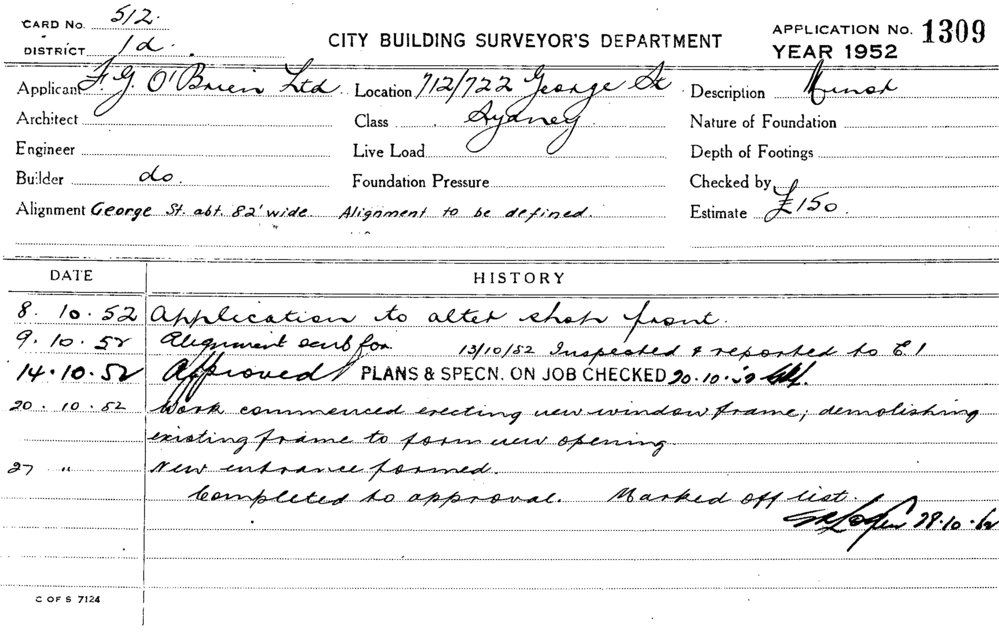 CARD No. 512. APPLICATION No. 1309
DISTRICT 1d. CITY BUILDING SURVEYOR'S DEPARTMENT YEAR 1952
Applicant F. G. O'Brien Ltd. Location 712/722 George St Description Minor
Architect Class Sydney Nature of Foundation
Engineer Live Load Depth of Footings
Builder do. Foundation Pressure Checked by
Alignment George St. abt. 82' wide. Alignment to be defined. Estimate £150.
DATE HISTORY
8. 10. 52 Application to alter shop front.
9. 10. 52 Alignment sent for 13/10/52 Inspected & reported to E.1
14. 10. 52 Approved PLANS & SPECN. ON JOB CHECKED 20.10.52
20. 10. 52 Work commenced erecting new window frame; demolishing
existing frame to form new opening.
27 " New entrance formed.
Completed to approval. Marked off list.
28.10.52
C OF S 7124